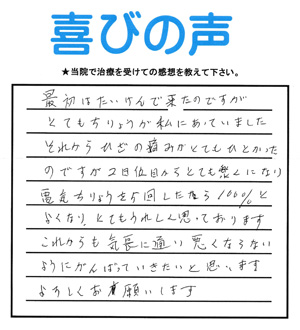 喜びの声
★当院で治療を受けての感想を教えて下さい。
最初はたいけんで来たのですが
とてもちりょうが私にあっていました
それからひざの痛みがとてもひどかった
のですが2日位目からとても楽くになり
電気ちりょうを5回したら100%と
よくなり、とてもうれしく思っております
これからも気長に通い悪くならない
ようにがんばっていきたいと思います
よろしくお願いします